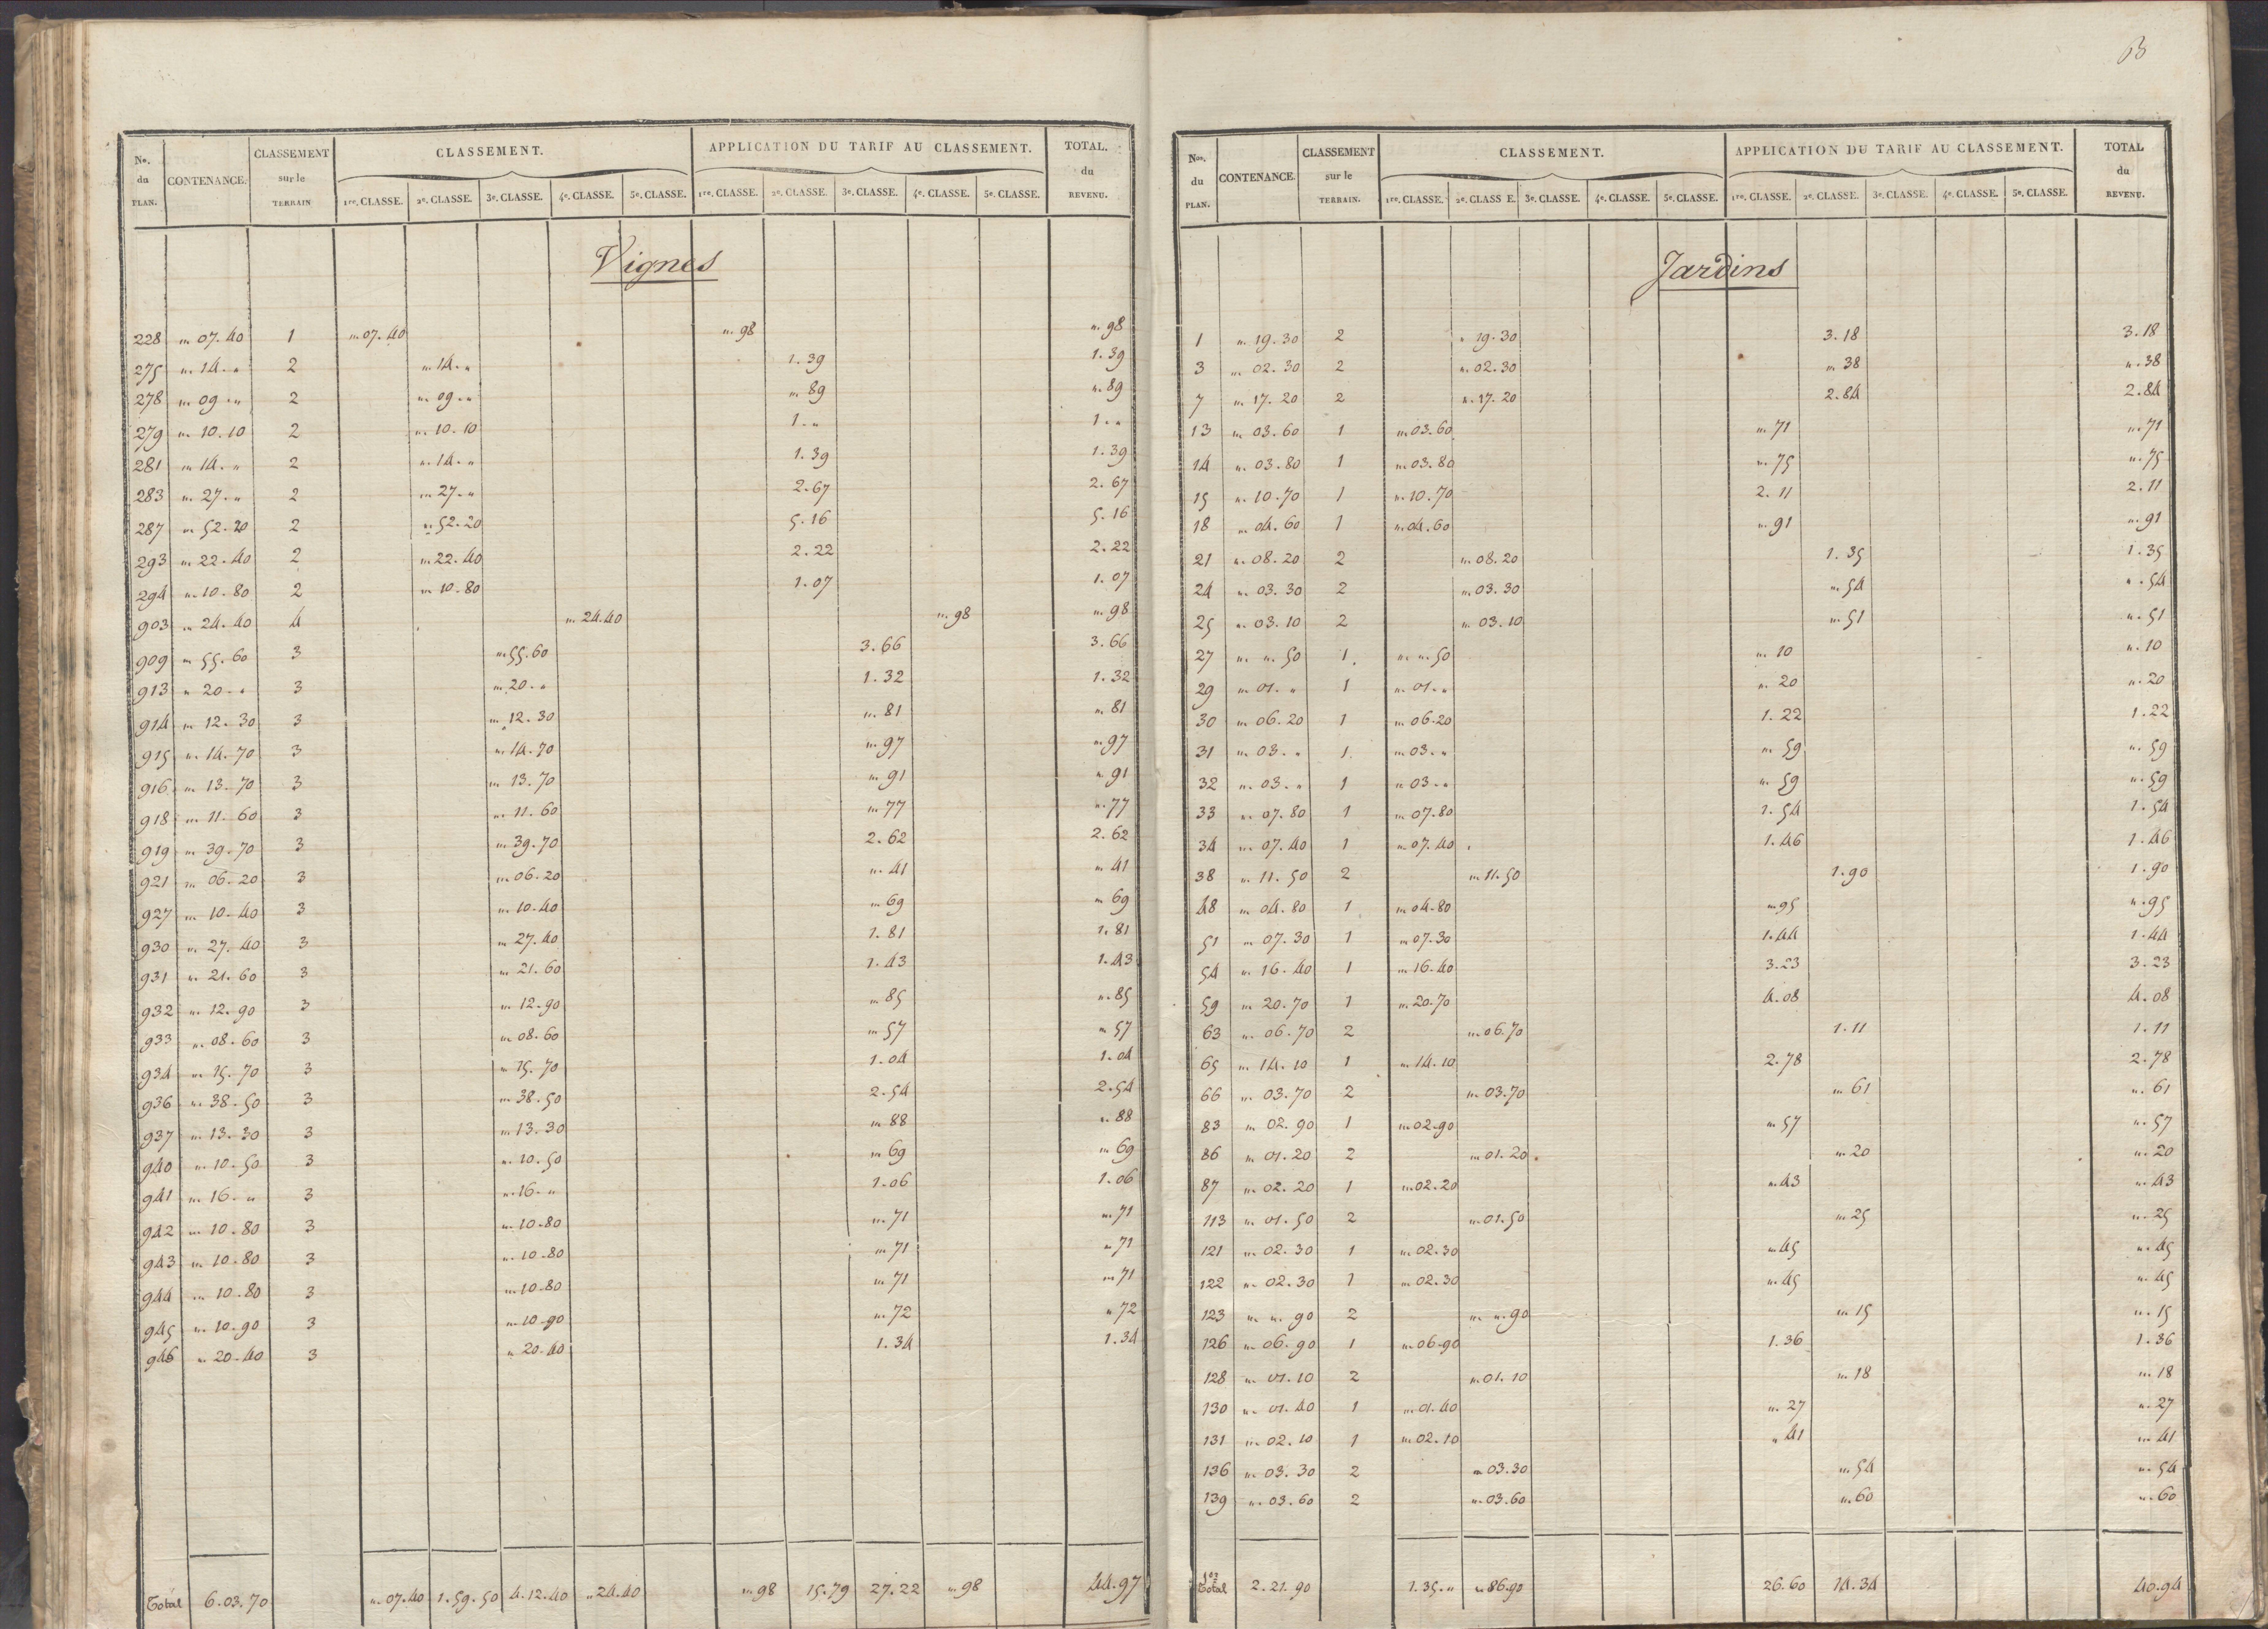 B
Nos. du PLAN. CONTENANCE. CLASSEMENT sur le TERRAIN CLASSEMENT. APPLICATION DU TARIF AU CLASSEMENT. TOTAL. du REVENU.
1re. CLASSE. 2e. CLASSE. 3e. CLASSE. 4e. CLASSE. 5e. CLASSE. 1re. CLASSE. 2e. CLASSE. 3e. CLASSE. 4e. CLASSE. 5e. CLASSE.
Vignes
228 " 07.40 1 " 07.40 ". 98 ". 98
275 " 14." 2 " 14." 1.39 1.39
278 " 09." 2 " 09." " 89 ". 89
279 " 10.10 2 " 10.10 1." 1."
281 " 14." 2 " 14." 1.39 1.39
283 " 27." 2 " 27." 2.67 2.67
287 " 52.20 2 " 52.20 5.16 5.16
293 " 22.40 2 " 22.40 2.22 2.22
294 " 10.80 2 " 10.80 1.07 1.07
903 " 24.40 4 " 24.40 ". 98 ". 98
909 " 55.60 3 " 55.60 3.66 3.66
913 " 20." 3 " 20." 1.32 1.32
914 " 12.30 3 " 12.30 ". 81 ". 81
915 " 14.70 3 " 14.70 ". 97 ". 97
916 " 13.70 3 " 13.70 ". 91 ". 91
918 " 11.60 3 " 11.60 ". 77 ". 77
919 " 39.70 3 " 39.70 2.62 2.62
921 " 06.20 3 " 06.20 ". 41 ". 41
927 " 10.40 3 " 10.40 ". 69 ". 69
930 " 27.40 3 " 27.40 1.81 1.81
931 " 21.60 3 " 21.60 1.43 1.43
932 " 12.90 3 " 12.90 ". 85 ". 85
933 " 08.60 3 " 08.60 ". 57 ". 57
934 " 15.70 3 " 15.70 1.04 1.04
936 " 38.50 3 " 38.50 2.54 2.54
937 " 13.30 3 " 13.30 ". 88 ". 88
940 " 10.50 3 " 10.50 ". 69 ". 69
941 " 16." 3 " 16." 1.06 1.06
942 " 10.80 3 " 10.80 ". 71 ". 71
943 " 10.80 3 " 10.80 ". 71 ". 71
944 " 10.80 3 " 10.80 ". 71 ". 71
945 " 10.90 3 " 10.90 ". 72 ". 72
946 " 20.40 3 " 20.40 1.34 1.34
Total 6.03.70 ". 07.40 1.59.50 4.12.40 " 24.40 ". 98 15.79 27.22 ". 98 44.97
Nos. du PLAN. CONTENANCE. CLASSEMENT sur le TERRAIN. CLASSEMENT. APPLICATION DU TARIF AU CLASSEMENT. TOTAL du REVENU.
1re. CLASSE. 2e. CLASS E. 3e. CLASSE. 4e. CLASSE. 5e. CLASSE. 1re. CLASSE. 2e. CLASSE. 3e. CLASSE. 4e. CLASSE. 5e. CLASSE.
Jardins
1 " 19.30 2 " 19.30 3.18 3.18
3 " 02.30 2 " 02.30 ". 38 ". 38
7 " 17.20 2 " 17.20 2.84 2.84
13 " 03.60 1 " 03.60 ". 71 ". 71
14 " 03.80 1 " 03.80 ". 75 ". 75
15 " 10.70 1 " 10.70 2.11 2.11
18 " 04.60 1 " 04.60 ". 91 ". 91
21 " 08.20 2 " 08.20 1.35 1.35
24 " 03.30 2 " 03.30 ". 54 ". 54
25 " 03.10 2 " 03.10 ". 51 ". 51
27 " ". 50 1 " ". 50 ". 10 ". 10
29 " 01." 1 " 01." ". 20 ". 20
30 " 06.20 1 " 06.20 1.22 1.22
31 " 03." 1 " 03." ". 59 ". 59
32 " 03." 1 " 03." ". 59 ". 59
33 " 07.80 1 " 07.80 1.54 1.54
34 " 07.40 1 " 07.40 1.46 1.46
38 " 11.50 2 " 11.50 1.90 1.90
48 " 04.80 1 " 04.80 ". 95 ". 95
51 " 07.30 1 " 07.30 1.44 1.44
54 " 16.40 1 " 16.40 3.23 3.23
59 " 20.70 1 " 20.70 4.08 4.08
63 " 06.70 2 " 06.70 1.11 1.11
65 " 14.10 1 " 14.10 2.78 2.78
66 " 03.70 2 " 03.70 ". 61 ". 61
83 " 02.90 1 " 02.90 ". 57 ". 57
86 " 01.20 2 " 01.20 ". 20 ". 20
87 " 02.20 1 " 02.20 ". 43 ". 43
113 " 01.50 2 " 01.50 ". 25 ". 25
121 " 02.30 1 " 02.30 ". 45 ". 45
122 " 02.30 1 " 02.30 ". 45 ". 45
123 " ". 90 2 " ". 90 ". 15 ". 15
126 " 06.90 1 " 06.90 1.36 1.36
128 " 01.10 2 " 01.10 ". 18 ". 18
130 " 01.40 1 " 01.40 ". 27 ". 27
131 " 02.10 1 " 02.10 ". 41 ". 41
136 " 03.30 2 " 03.30 ". 54 ". 54
139 " 03.60 2 " 03.60 ". 60 ". 60
1er Total 2.21.90 1.35." " 86.90 26.60 14.34 40.94